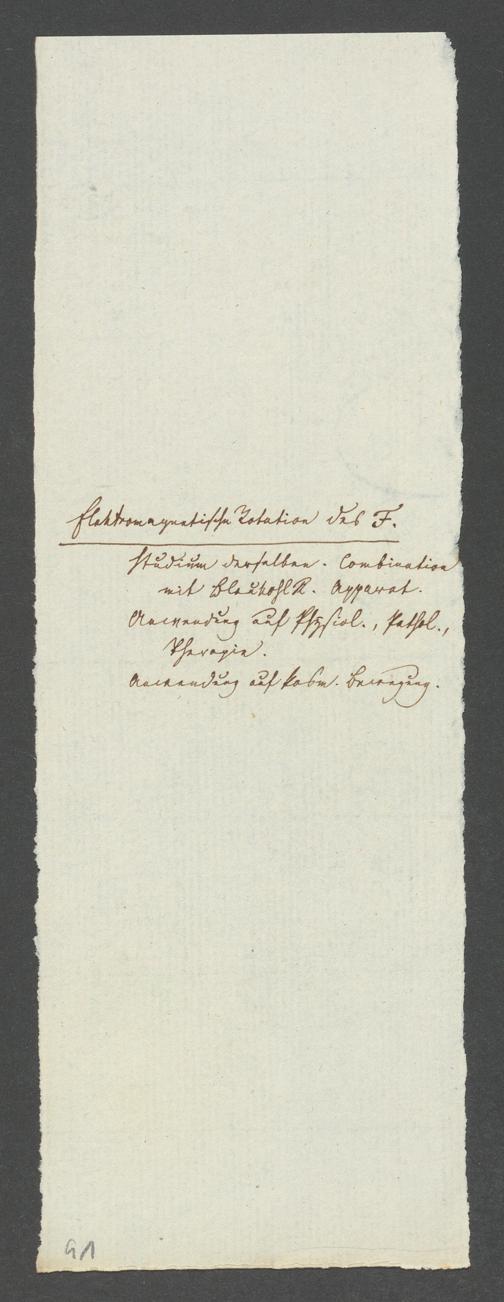 Elektromagnetische Rotation des F.
Studium derselben. Combination
mit Apparat.
Anwendung auf Physiol., Pathol.,
Therapie.
Anwendung auf kosm. Bewegung.
91